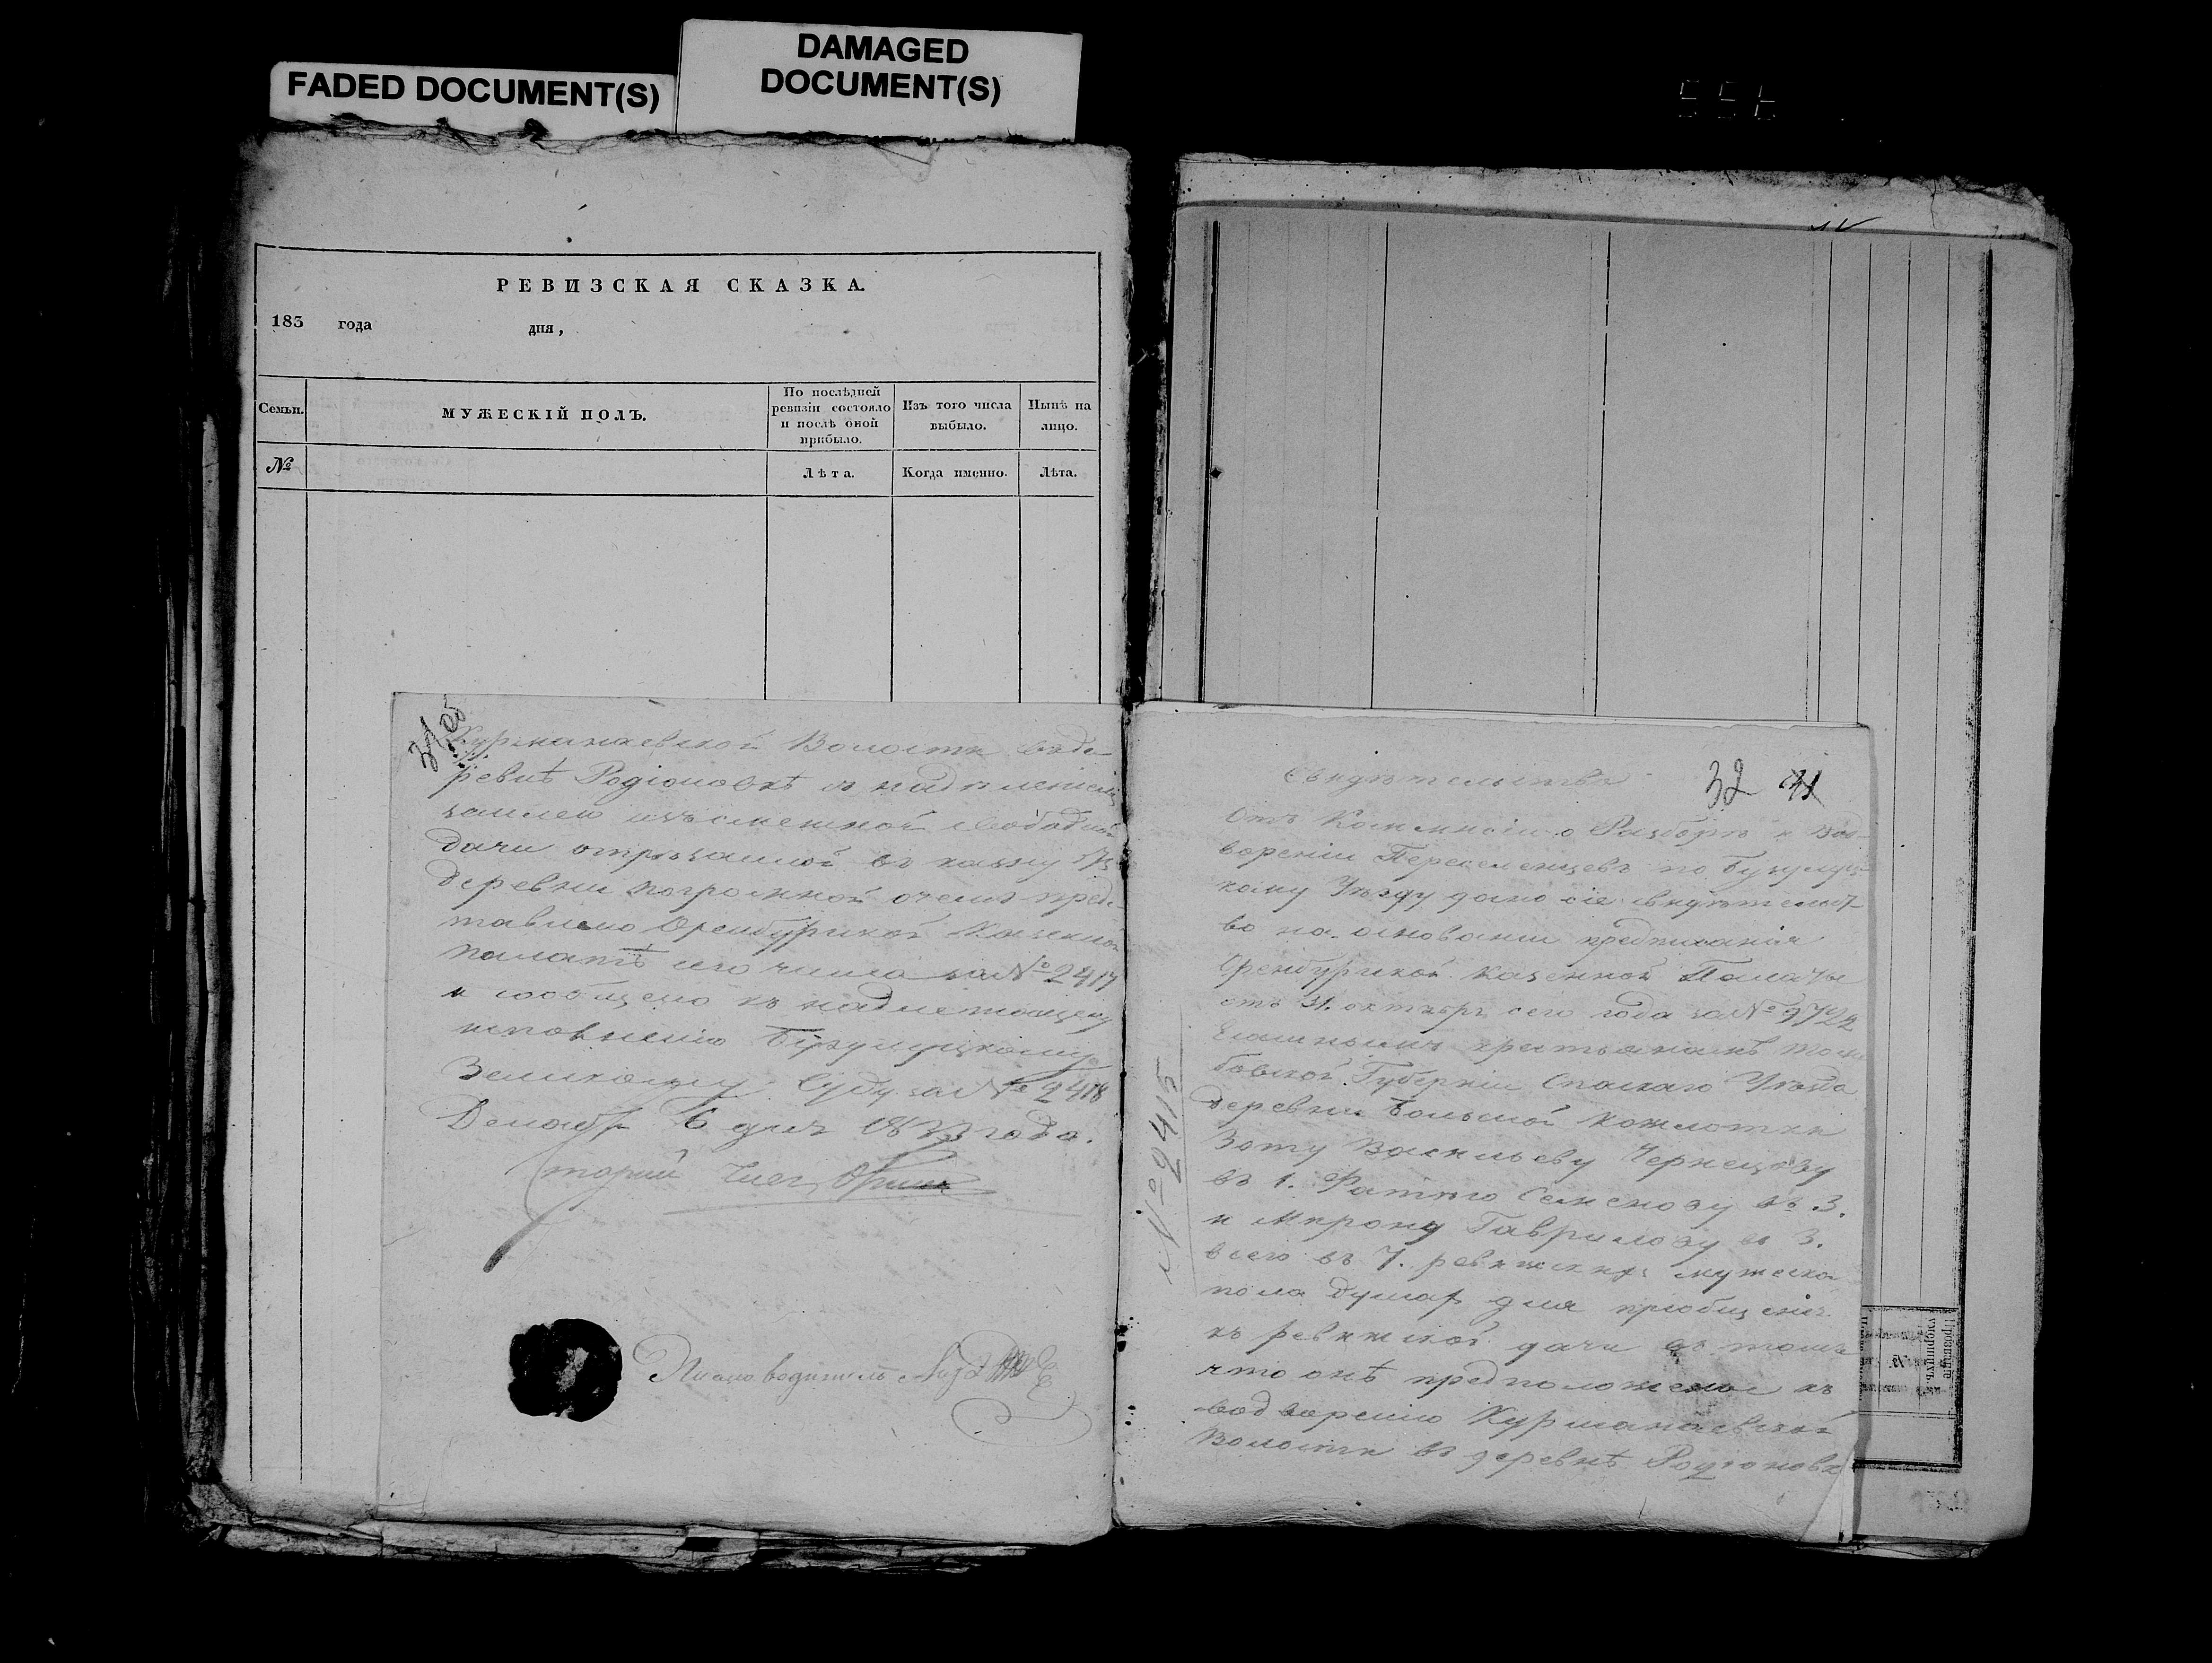 FADED DOCUMENT(S)
DAMAGED
DOCUMENT(S)
РЕВИЗСКАЯ СКАЗКА.
183 года дня,
Семьи.
МУЖЕСКІЙ ПОЛЪ.
По послѣдней
ревизіи состояло
и послѣ оной
прибыло.
Изъ того числа
выбыло.
Нынѣ на
лицо.
№
Лѣта.
Когда именно.
Лѣта.
31 об
Курманаевской Волости въ де-
ревнѣ Родіоновкѣ
землею изъ смежной свободной
дачи отрѣзанной въ казну
деревни Погромной о чемъ пред-
тавлено Оренбургской Казенной
Палатѣ сего числа за № 2417
и сообщено къ надлежащему
исполненію Бузулуцкому
Земскому Суду за № 2418
Декабр 6 дня года.
Письмоводитель
32 31
Свидѣтельство
Отъ Коммисіи о Разборѣ и Вод-
вореніи Переселенцевъ по Бузулуц-
кому Уѣзду дано сіе свидѣтельст-
во на основаніи предписанія
Оренбургской Казенной Палаты
отъ 31. октябр сего года за № 9722
крестьянамъ Там
бовской Губерніи Спаскаго Уѣзда
деревни Большой
Зоту Васильеву Чернецову
въ 1. Семенову въ 3.
и Мирону Гаврилову въ 3.
всего въ 7. ревижскихъ мужеска
пола душахъ для пріобщенія
къ ревижской дачи въ томъ
что онѣ предположены къ
водворенію Курманаевской
Волости въ деревнѣ Родіоновк
№ 2415